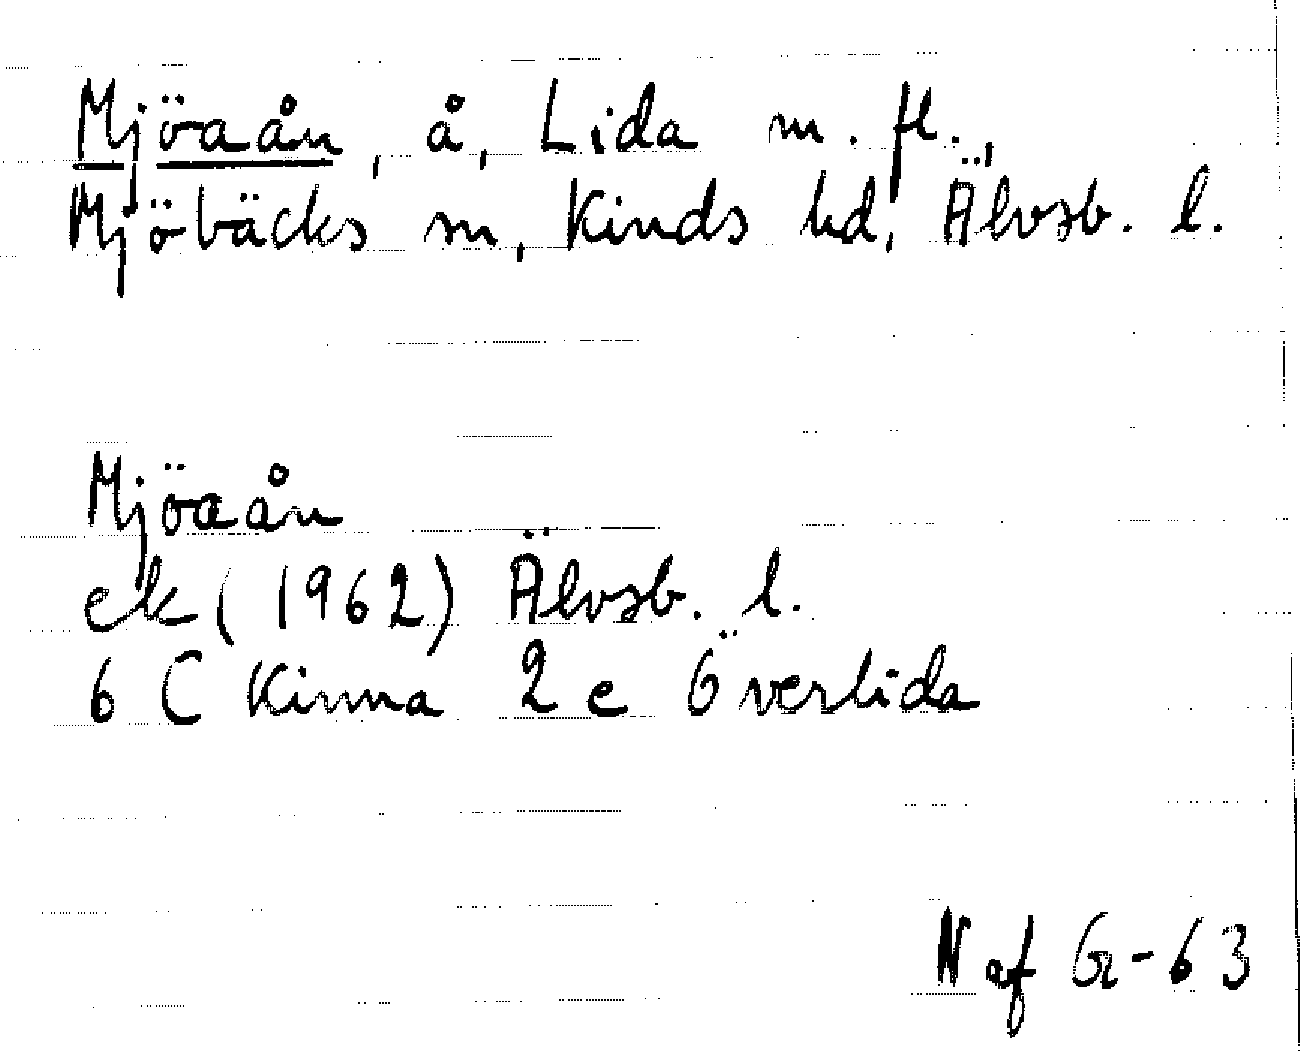 Mjöaån, å, Lida m. fl.,
Mjöbäcks sn, Kinds hd, Älvsb. l.
Mjöaån
ek (1962) Älvsb. l.
6 C Kinna 2 e Överlida
N af Gr-63